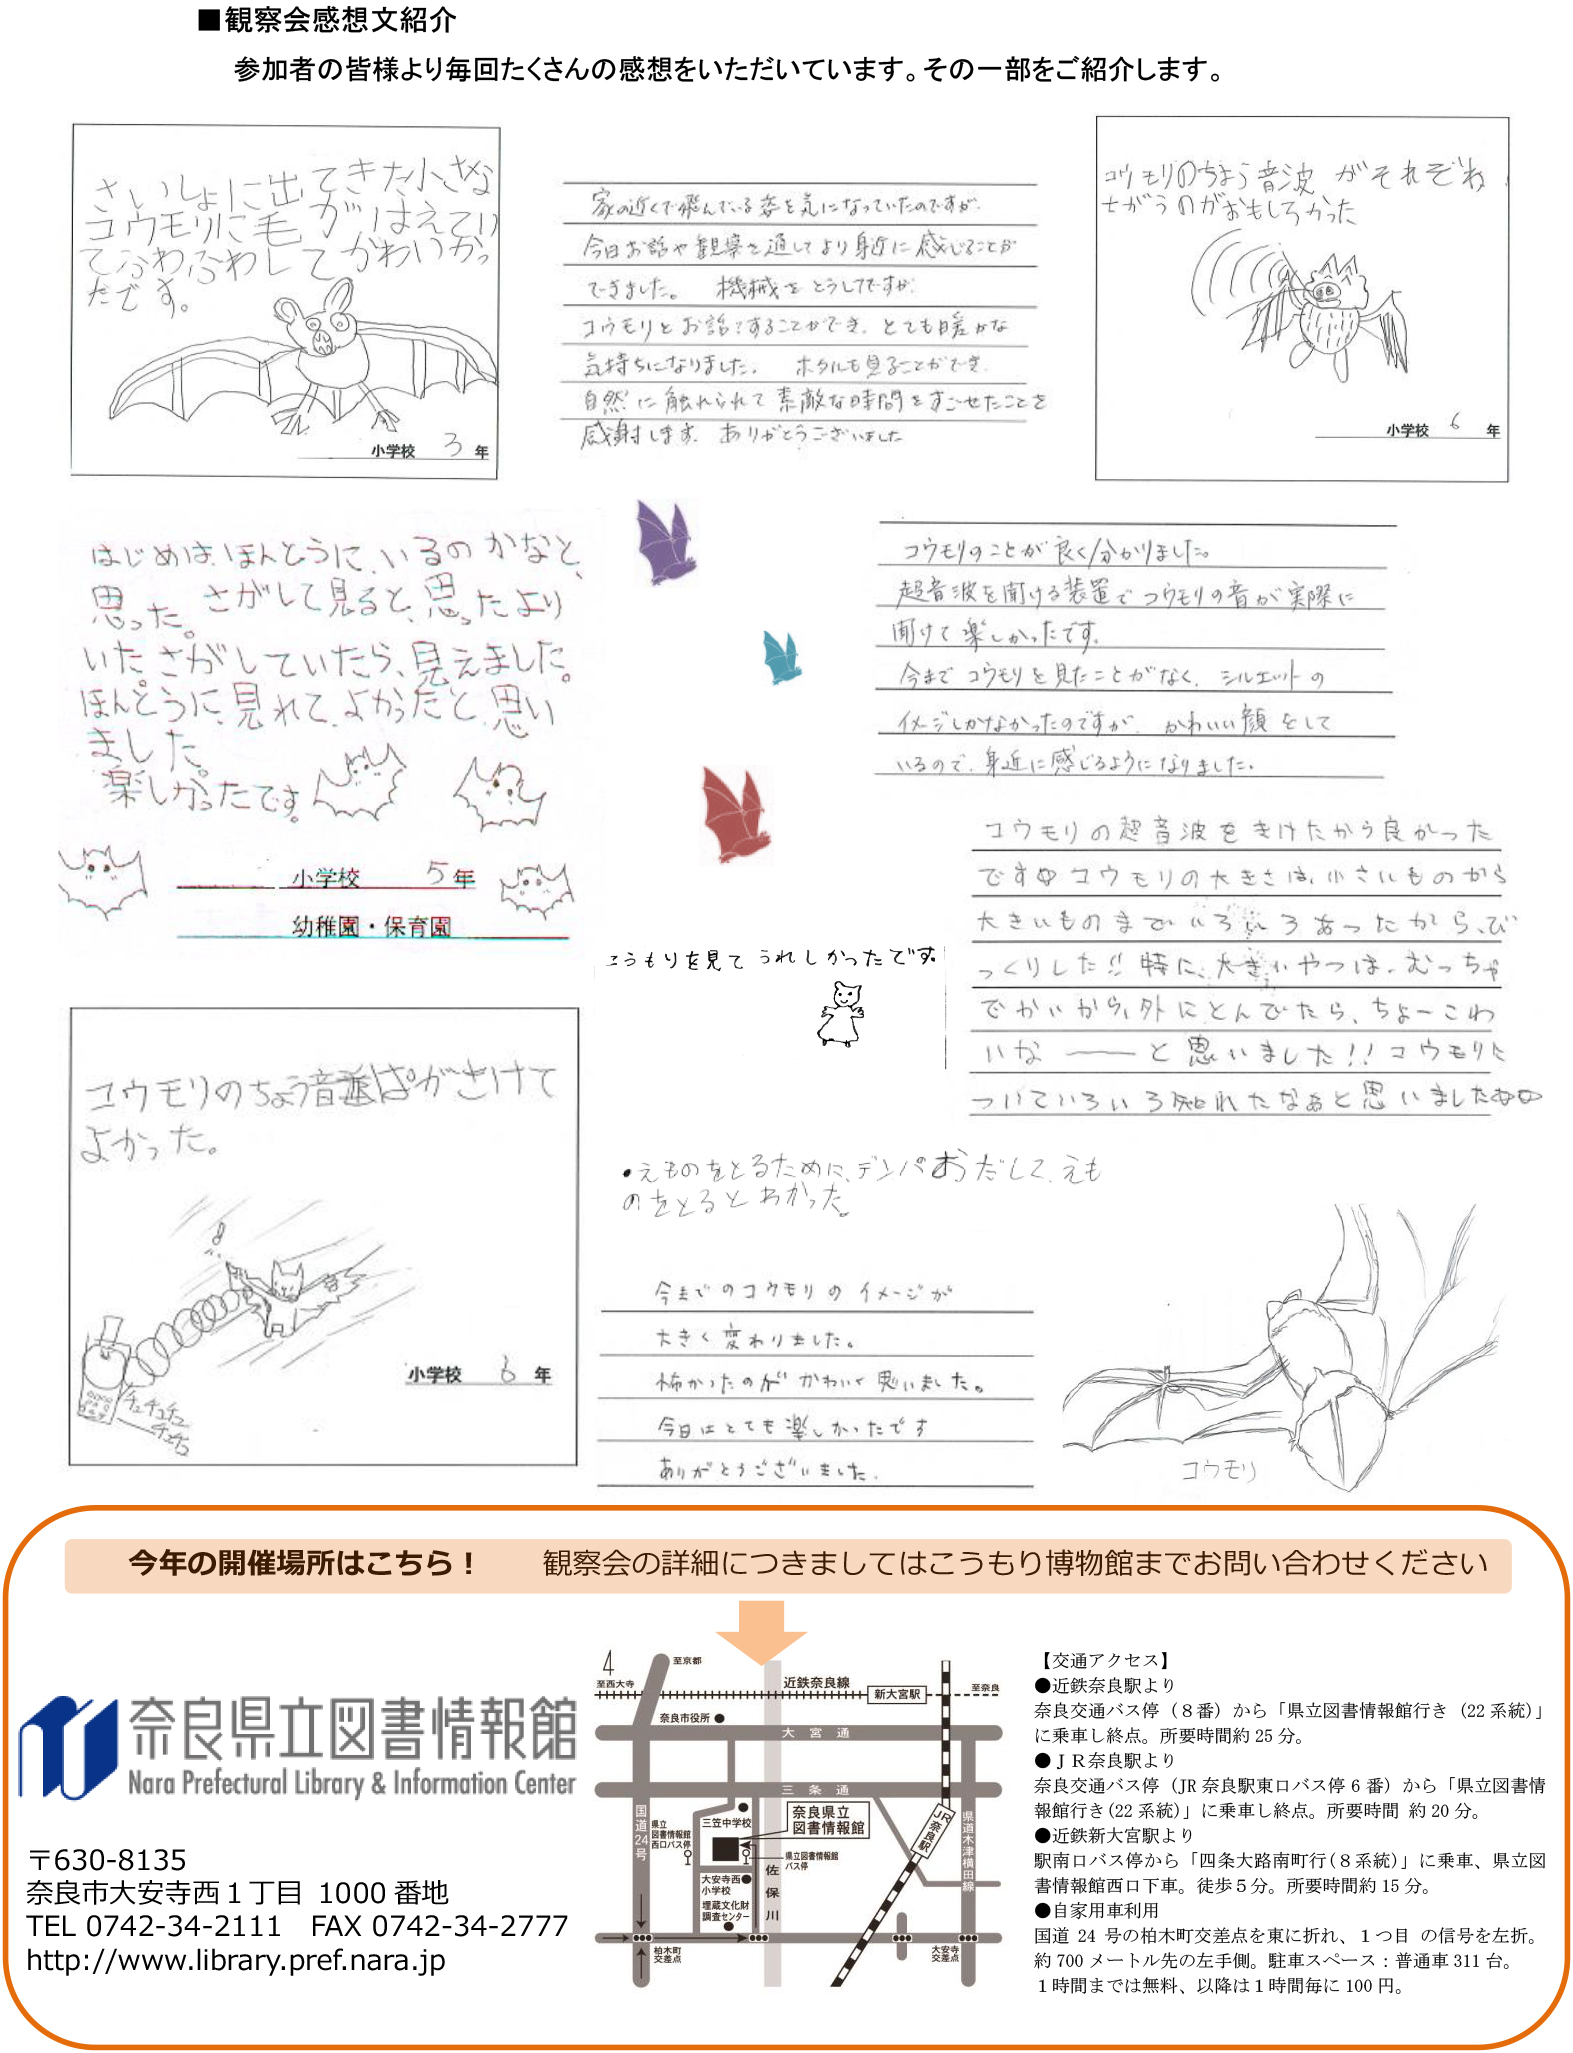 ■観察会感想文紹介
参加者の皆様より毎回たくさんの感想をいただいています。その一部をご紹介します。
さいしょに出てきた小さな
コウモリに毛がはえてい
てふわふわしてかわいかっ
たです。
小学校 3 年
家の近くで飛んでいる姿を気になっていたのですが、
今日お話や観察を通してより身近に感じることが
できました。 機械をとうしてですが、
コウモリとお話?することができ、とても暖かな
気持ちになりました。 ホタルも見ることができ、
自然に触れられて素敵な時間をすごせたことを
感謝します。ありがとうございました
コウモリのちょう音波がそれぞれ
ちがうのがおもしろかった
小学校 6 年
はじめは、ほんとうに、いるのかなと、
思った。さがして見ると、思ったより
いた。さがしていたら、見えました。
ほんとうに、見れて、よかったと、思い
ました。
楽しかったです。
小学校 5年
幼稚園・保育園
コウモリのことが良く分かりました。
超音波を聞ける装置でコウモリの音が実際に
聞けて楽しかったです。
今までコウモリを見たことがなく、シルエットの
イメージしかなかったのですが、かわいい顔をして
いるので、身近に感じるようになりました。
コウモリの超音波をきけたから良かった
です コウモリの大きさは、小さいものから
大きいものまでいろいろあったから、び
っくりした!!特に、大きいやつは、むっちゃ
でかいから、外にとんでたら、ちょーこわ
いな――と思いました!!コウモリに
ついていろいろ知れたなぁと思いました
こうもりを見てうれしかったです。
コウモリのちょう音ぱがきけて
よかった。
チュチュチュ
チュチュ
小学校 6 年
•えものをとるために、デンパおだして、えも
のをとるとわかった。
今までのコウモリのイメージが
大きく変わりました。
怖かったのがかわいく思いました。
今日はとても楽しかったです
ありがとうございました。
コウモリ
今年の開催場所はこちら！ 観察会の詳細につきましてはこうもり博物館までお問い合わせください
奈良県立図書情報館
Nara Prefectural Library & Information Center
〒630-8135
奈良市大安寺西１丁目 1000 番地
TEL 0742-34-2111 FAX 0742-34-2777
http://www.library.pref.nara.jp
4
至京都
至西大寺
近鉄奈良線
新大宮駅
至奈良
奈良市役所
大宮通
三条通
国道24号
県立
図書情報館
西口バス停
三笠中学校
奈良県立
図書情報館
県立図書情報館
バス停
大安寺西
小学校
埋蔵文化財
調査センター
佐保川
JR奈良駅
県道木津横田線
柏木町
交差点
大安寺
交差点
【交通アクセス】
●近鉄奈良駅より
奈良交通バス停（８番）から「県立図書情報館行き（22 系統）」
に乗車し終点。所要時間約 25 分。
●ＪＲ奈良駅より
奈良交通バス停（JR 奈良駅東口バス停 6 番）から「県立図書情
報館行き(22 系統)」に乗車し終点。所要時間 約 20 分。
●近鉄新大宮駅より
駅南口バス停から「四条大路南町行(８系統)」に乗車、県立図
書情報館西口下車。徒歩５分。所要時間約 15 分。
●自家用車利用
国道 24 号の柏木町交差点を東に折れ、１つ目 の信号を左折。
約 700 メートル先の左手側。駐車スペース：普通車 311 台。
１時間までは無料、以降は１時間毎に 100 円。